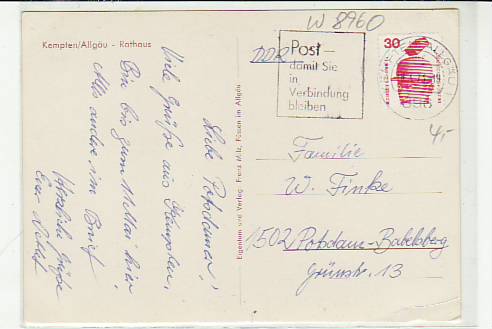 Kempten/Allgäu - Rathaus
Liebe Potsdamer!
Viele Grüße aus Kempten.
Bin bis zum hier.
Alles andere im Brief
Herzliche Grüße
Euer
Eigentum und Verlag: Franz Milz, Füssen im Allgäu
W 8960
DDR
Post –
damit Sie
in
Verbindung
bleiben
30
4,-
Familie
W. Finke
1502 Potsdam-Babelsberg
Grünstr. 13